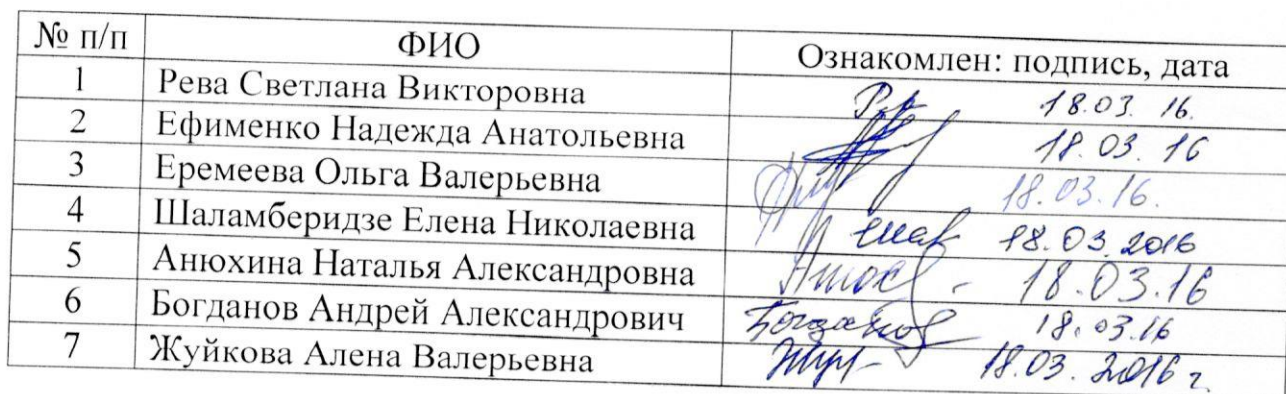 № п/п ФИО Ознакомлен: подпись, дата
1 Рева Светлана Викторовна 18.03. 16.
2 Ефименко Надежда Анатольевна 18.03.16
3 Еремеева Ольга Валерьевна 18.03.16.
4 Шаламберидзе Елена Николаевна 18.03.2016
5 Анюхина Наталья Александровна - 18.03.16
6 Богданов Андрей Александрович Богданов 18.03.16
7 Жуйкова Алена Валерьевна 18.03.2016 г.